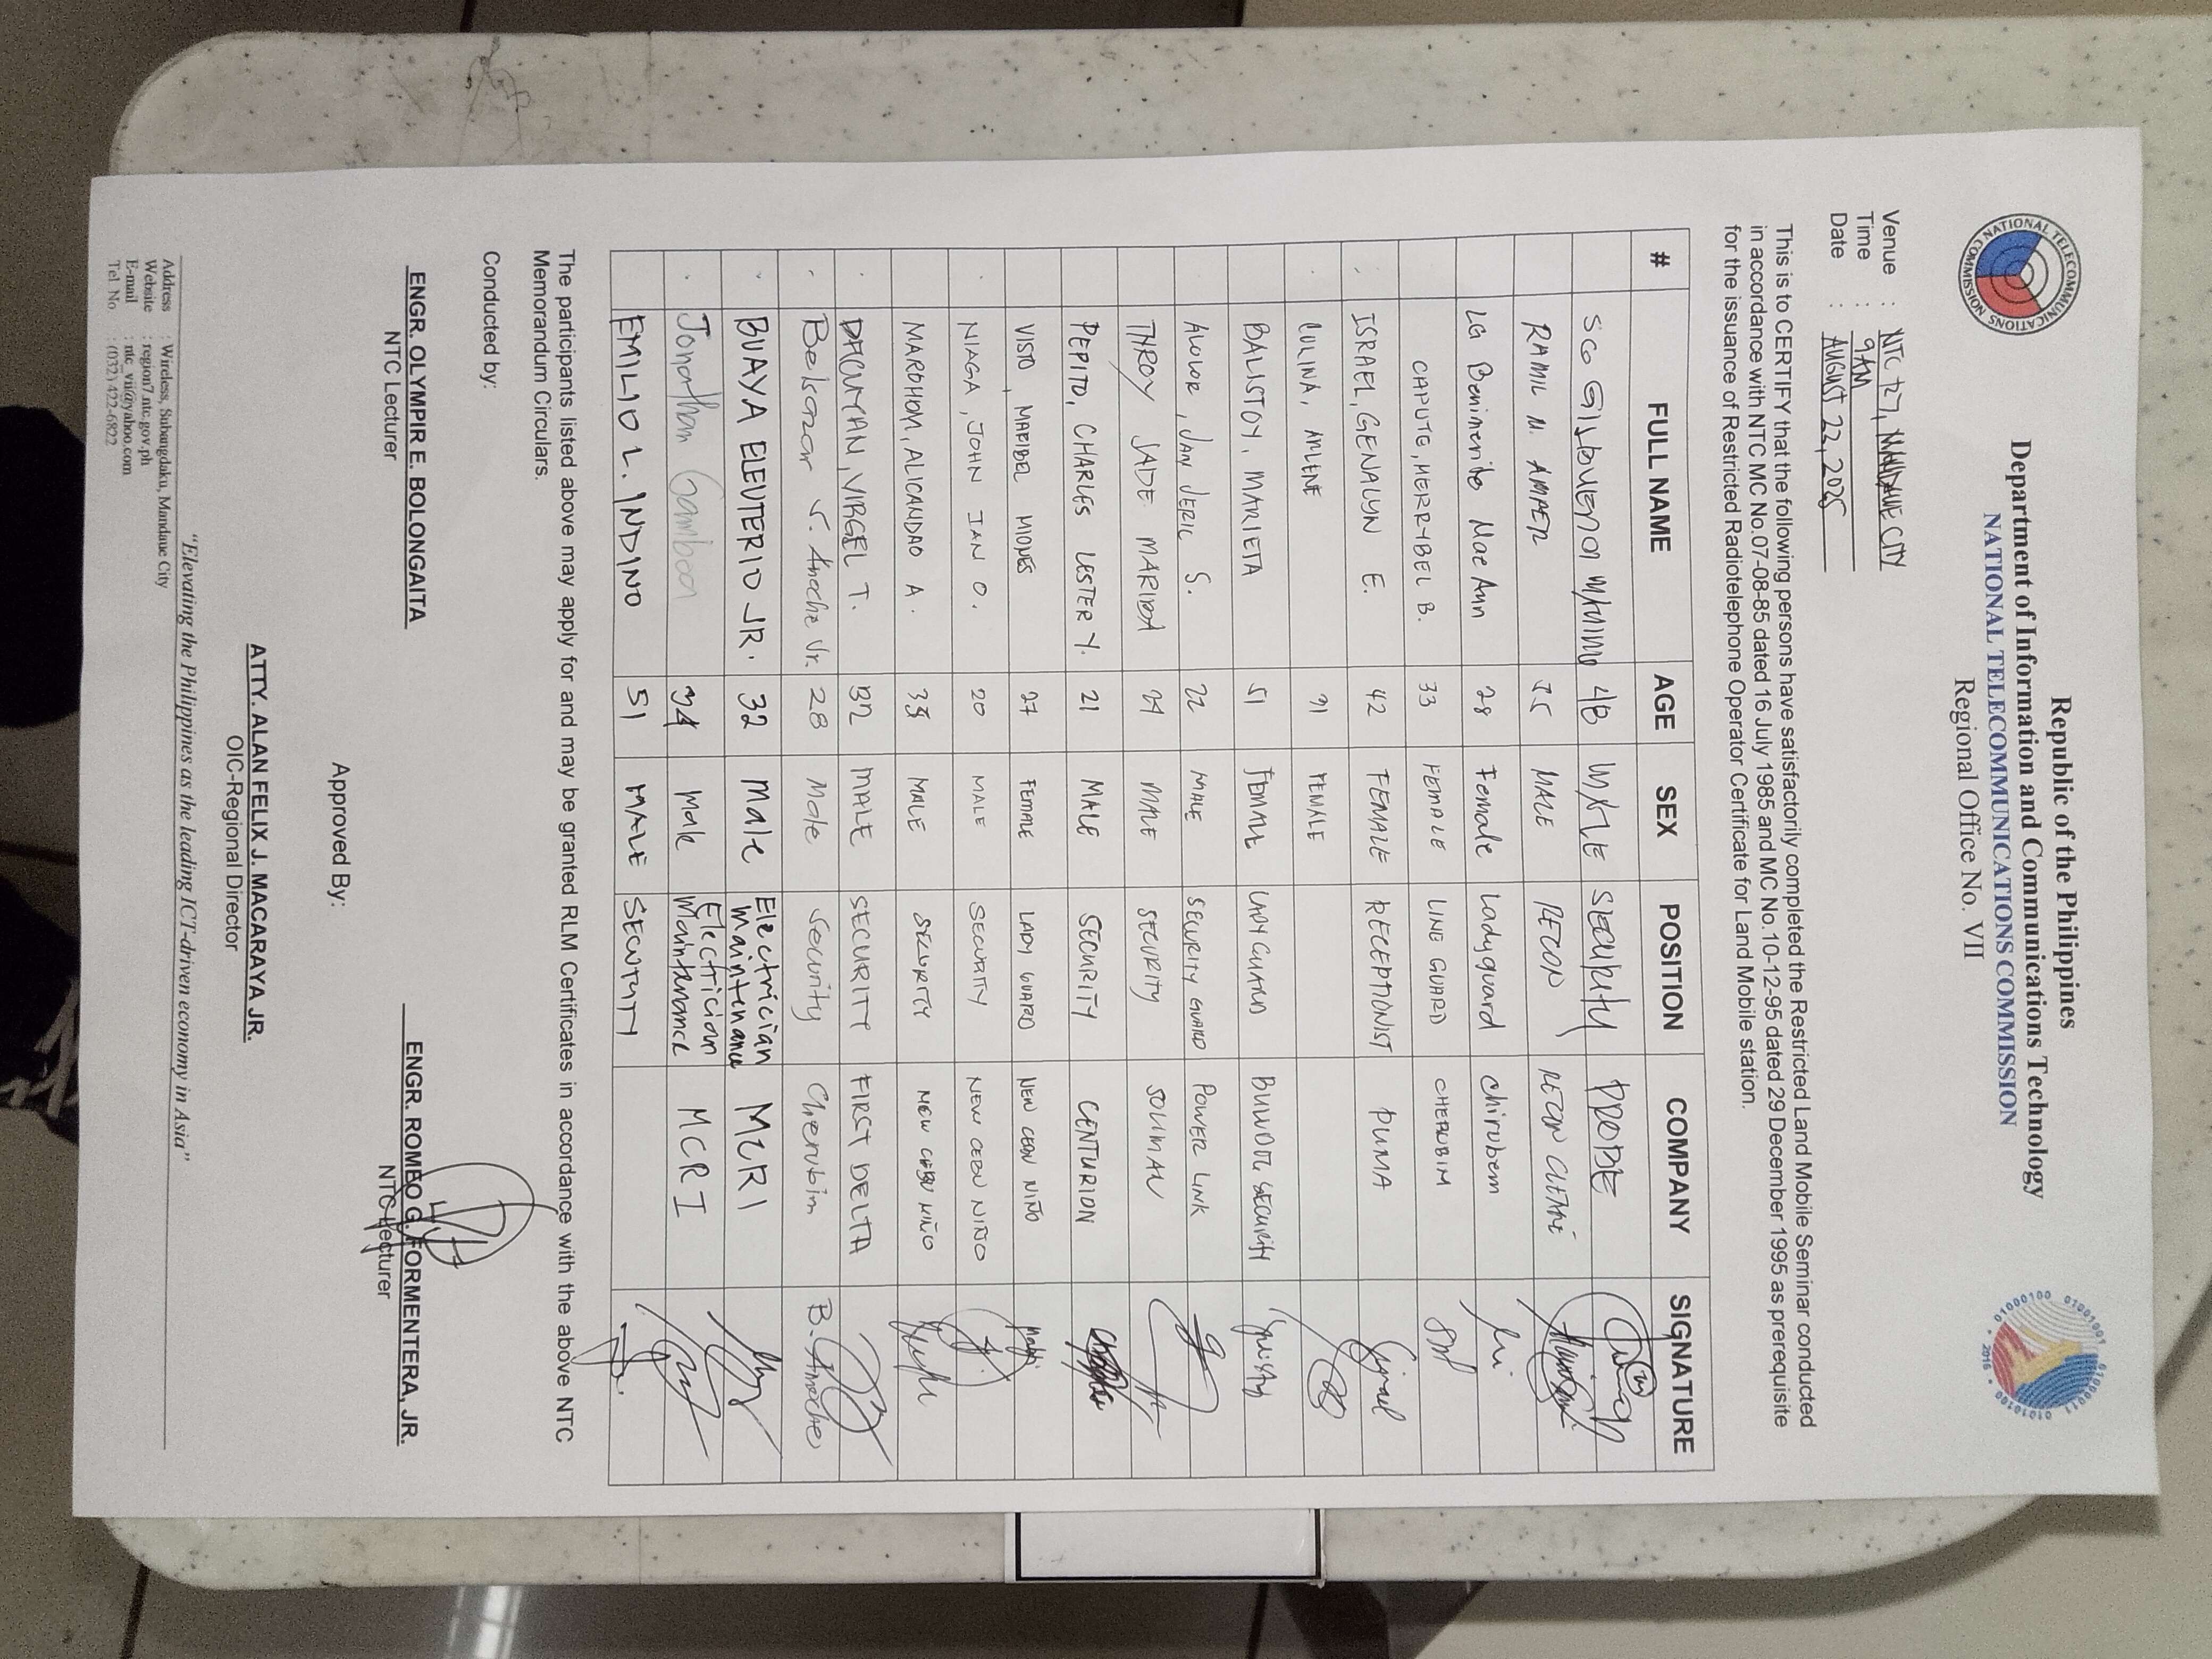 Republic of the Philippines
Department of Information and Communications Technology
NATIONAL TELECOMMUNICATIONS COMMISSION
Regional Office No. VII
NATIONAL TELECOMMUNICATIONS COMMISSION
2016
Venue : NTC R7, MANDAUE CITY
Time : 9AM
Date : AUGUST 22, 2025
This is to CERTIFY that the following persons have satisfactorily completed the Restricted Land Mobile Seminar conducted
in accordance with NTC MC No.07-08-85 dated 16 July 1985 and MC No.10-12-95 dated 29 December 1995 as prerequisite
for the issuance of Restricted Radiotelephone Operator Certificate for Land Mobile station.
# FULL NAME AGE SEX POSITION COMPANY SIGNATURE
SG MALE SECURITY PROBE
RAMIL N. MALE
LG Benimerito Mae Ann 28 Female Ladyguard chirubem
CAPUTE, MERRYBEL B. 33 FEMALE LINE GUARD CHERUBIM
ISRAEL, GENALYN E. 42 FEMALE RECEPTIONIST PUMA
CULINA, ARLENE 31 FEMALE
BALISTOY, MARIETA 51 FEMALE LADY GUARD SECURITY
JERIC S. 22 MALE SECURITY GUARD POWER LINK
THROY JADE 24 MALE SECURITY SOLIMAN
PEPITO, CHARLES LESTER Y. 21 MALE SECURITY CENTURION
VISTO, MARIBEL MIONES 27 FEMALE LADY GUARD NEW CEBU NIÑO
NIAGA, JOHN IAN O. 20 MALE SECURITY NEW CEBU NIÑO
MAROHOM, ALICANDAO A. MALE SECURITY NEW CEBU NIÑO
VIRGEL T. 32 MALE SECURITY FIRST DELTA
Belsazar V. Aneche Jr. 28 Male Security Cherubim B. Aneche
BUAYA ELEUTERIO JR. 32 Male Electrician Maintenance MCRI
Jonathan Gamboa 34 Male Electrician Maintenance MCRI
EMILIO L. INDINO 51 MALE SECURITY
The participants listed above may apply for and may be granted RLM Certificates in accordance with the above NTC
Memorandum Circulars.
Conducted by:
ENGR. OLYMPIR E. BOLONGAITA
NTC Lecturer
ENGR. ROMEO G. FORMENTERA, JR.
NTC Lecturer
Approved By:
ATTY. ALAN FELIX J. MACARAYA JR.
OIC-Regional Director
"Elevating the Philippines as the leading ICT-driven economy in Asia"
Address : Wireless, Subangdaku, Mandaue City
Website : region7.ntc.gov.ph
E-mail : ntc_vii@yahoo.com
Tel No : (032) 422-6822